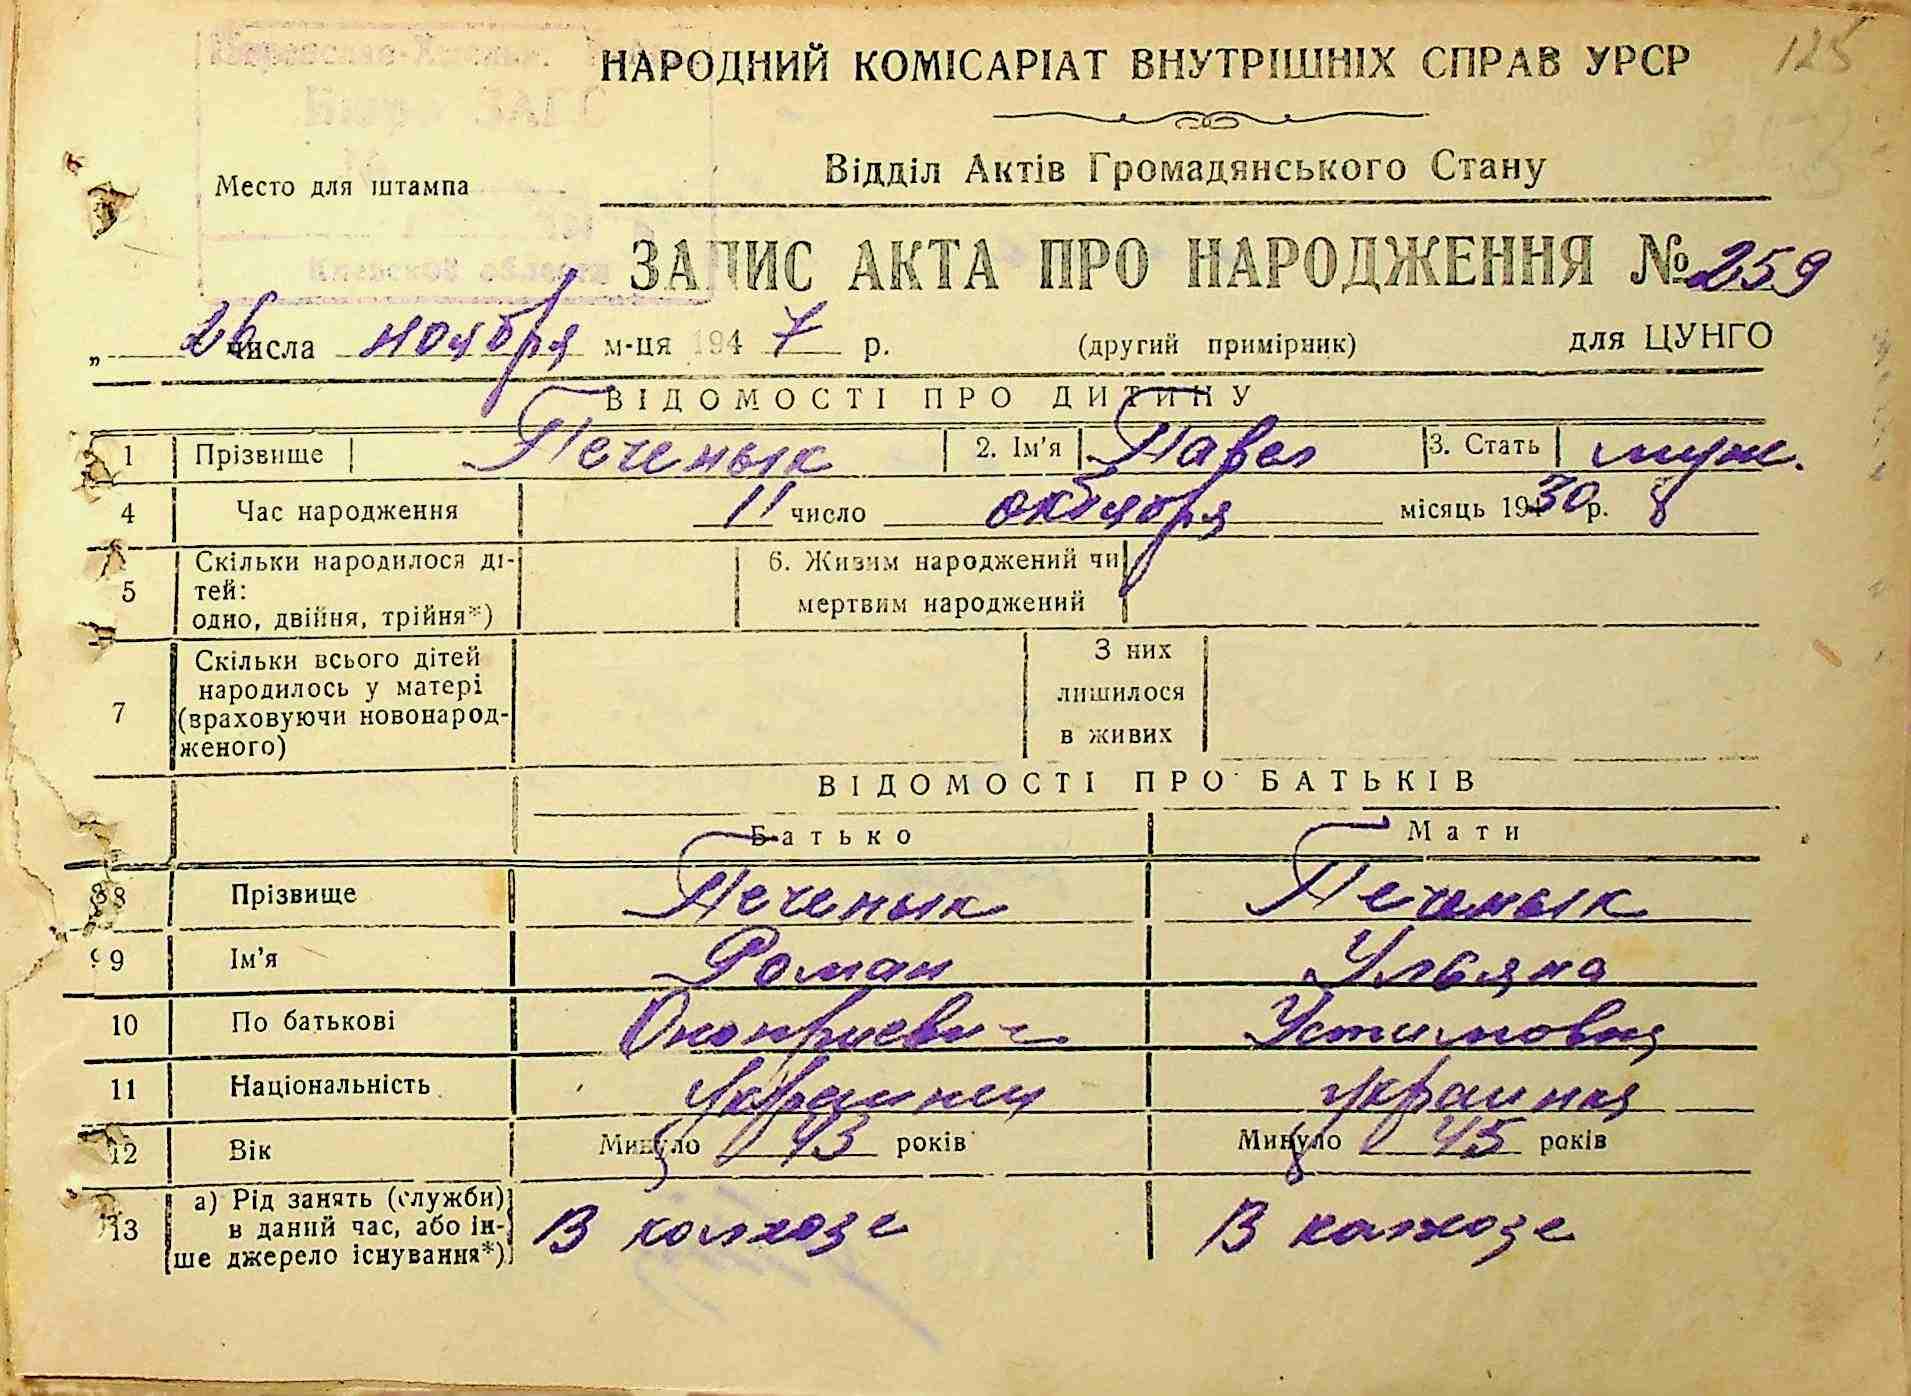 125
НАРОДНИЙ КОМІСАРІАТ ВНУТРІШНІХ СПРАВ УРСР
Відділ Актів Громадянського Стану
Место для штампа
Киевской области
ЗАПИС АКТА ПРО НАРОДЖЕННЯ № 259
„ 26 числа ноября м-ця 1947 р. (другий примірник) для ЦУНГО
ВІДОМОСТІ ПРО ДИТИНУ
1 Прізвище Печенык 2. Ім'я Павел 3. Стать муж.
4 Час народження 11 число октября місяць 1930 р.
5 Скільки народилося ді-
тей:
одно, двійня, трійня*)
6. Живим народжений чи
мертвим народжений
7 Скільки всього дітей
народилось у матері
(враховуючи новонарод-
женого)
З них
лишилося
в живих
ВІДОМОСТІ ПРО БАТЬКІВ
Батько Мати
8 Прізвище Печенык Печенык
9 Ім'я Роман Ульяна
10 По батькові Оноприевич Устимовна
11 Національність украинец украинка
12 Вік Минуло 43 років Минуло 45 років
13 а) Рід занять (служби)
в даний час, або ін-
ше джерело існування*)
В колхозе В колхозе